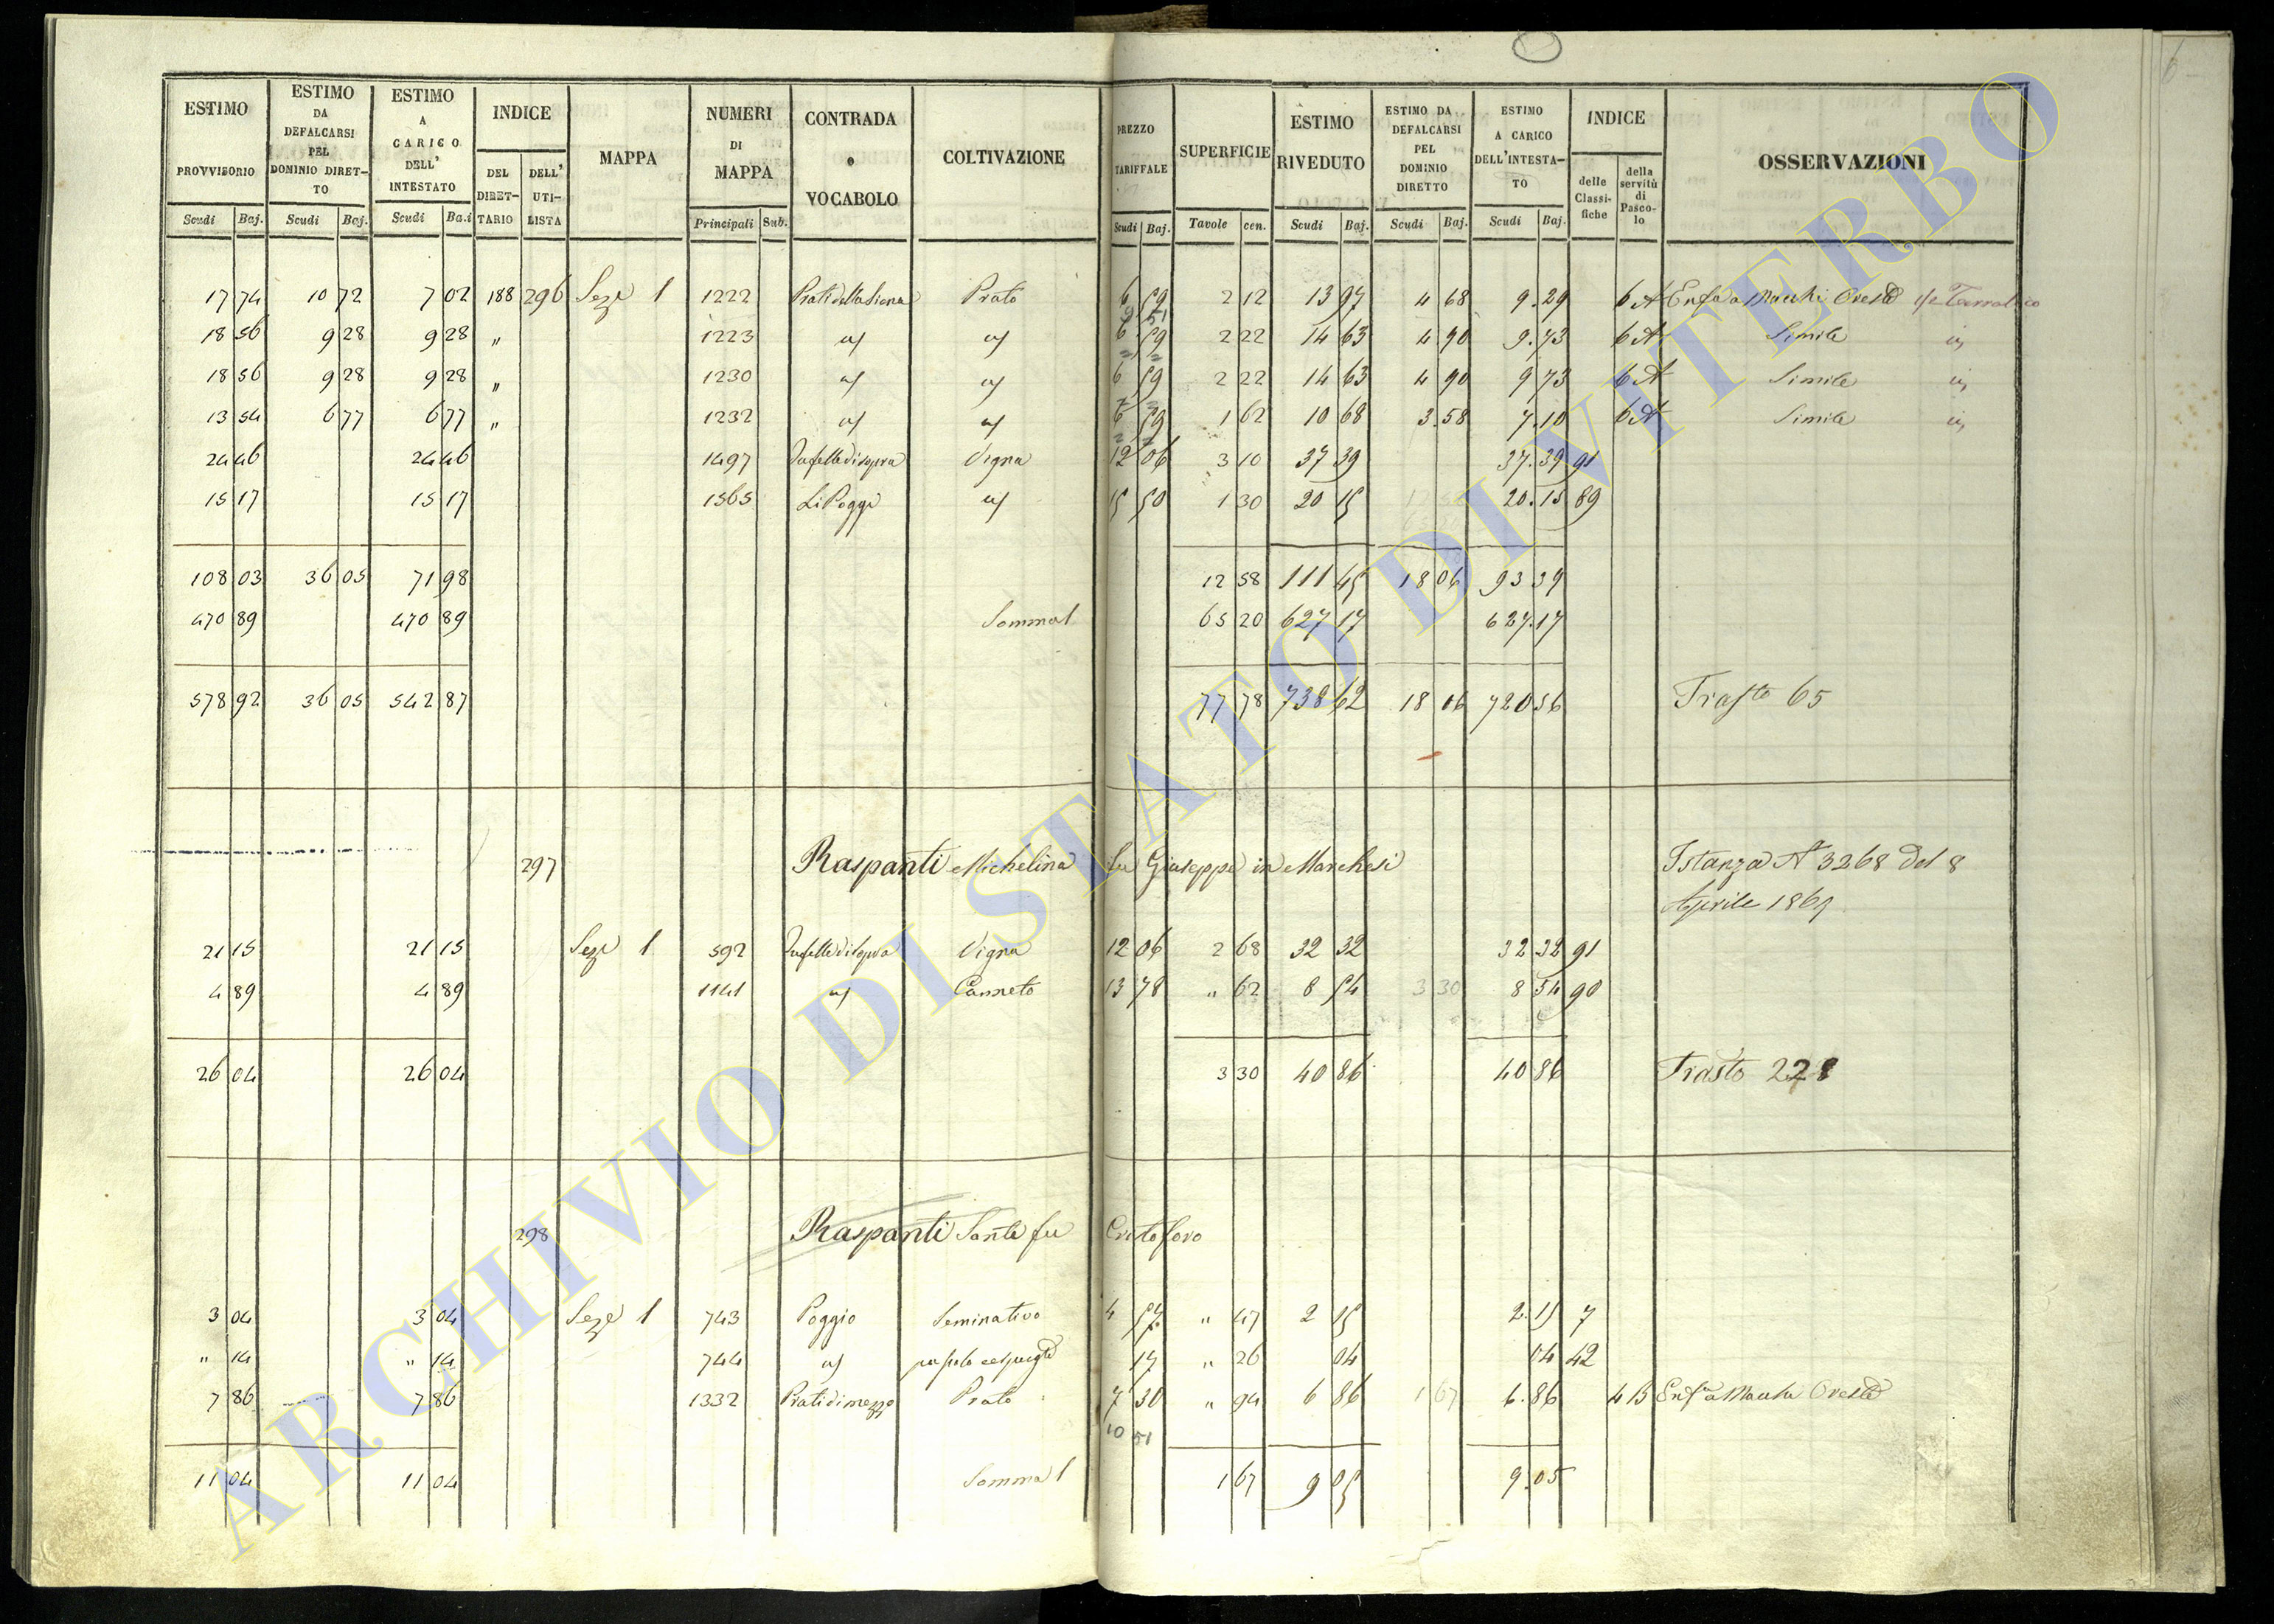 ESTIMO PROVVISORIO Scudi Baj. | ESTIMO DA DEFALCARSI PEL DOMINIO DIRET-TO Scudi Baj. | ESTIMO A CARICO DELL' INTESTATO Scudi Ba.i | INDICE DEL DIRET-TARIO DELL' UTI-LISTA | MAPPA | NUMERI DI MAPPA Principali Sub. | CONTRADA o VOCABOLO | COLTIVAZIONE | PREZZO TARIFFALE Scudi Baj. | SUPERFICIE Tavole cen. | ESTIMO RIVEDUTO Scudi Baj. | ESTIMO DA DEFALCARSI PEL DOMINIO DIRETTO Scudi Baj. | ESTIMO A CARICO DELL'INTESTA-TO Scudi Baj. | INDICE delle Classi-fiche della servitù di Pasco-lo | OSSERVAZIONI
17 74 10 72 7 02 188 296 Seze 1 1222 Prati della Prato 6 59 2 12 13 97 4 68 9.29 6 A Enfa a Oreste
9 51
18 56 9 28 9 28 " 1223 6 59 2 22 14 63 4 90 9.73 6 A Simile
18 56 9 28 9 28 " 1230 6 59 2 22 14 63 4 90 9 73 6 A Simile
13 54 6 77 6 77 " 1232 6 59 1 62 10 68 3.58 7.10 6 A Simile
24 46 24 46 1497 di sopra Vigna 12 06 3 10 37 39 37.39 91
15 17 15 17 1565 Li Poggi 15 50 1 30 20 15 20.15 89
108 03 36 05 71 98 12 58 111 45 18 06 93 39
470 89 470 89 Somma 1 65 20 627 17 627.17
578 92 36 05 542 87 77 78 738 62 18 06 720 56 Trasto 65
297 Raspanti Michelina fu Giuseppe in Marchesi Istanza N 3268 del 8
Aprile 1869
21 15 21 15 Seze 1 592 di sopra Vigna 12 06 2 68 32 32 32 32 91
4 89 4 89 1141 Canneto 13 78 " 62 8 54 3 30 8 54 90
26 04 26 04 3 30 40 86 40 86 Trasto 228
298 Raspanti Sante fu Cristoforo
3 04 3 04 Seze 1 743 Poggio Seminativo 4 57 " 47 2 15 2.15 7
" 14 " 14 744 17 " 26 04 04 42
7 86 7 86 1332 Prati di mezzo Prato 7 30 " 94 6 86 1 67 6.86 4 B Enfa a Oreste
10 51
11 04 11 04 Somma 1 1 67 9 05 9.05
6
ARCHIVIO DI STATO DI VITERBO